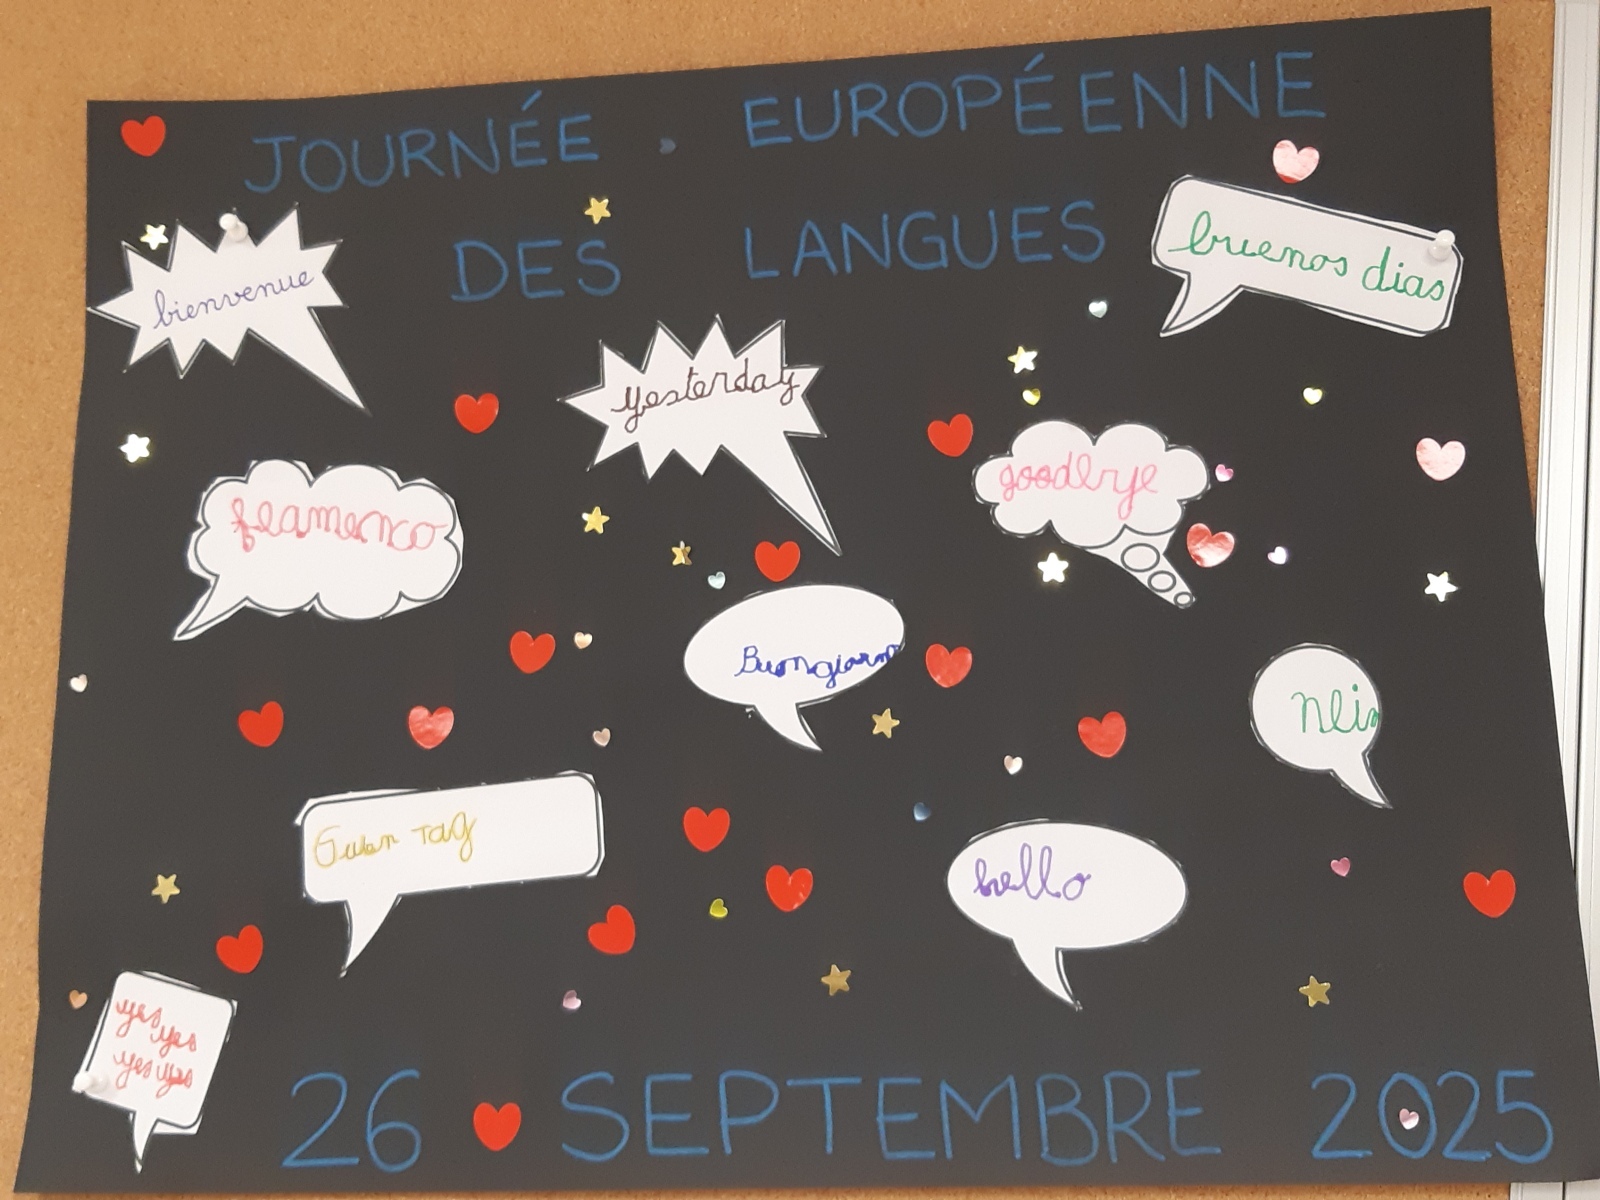 JOURNÉE EUROPÉENNE
DES LANGUES
bienvenue
buenos dias
yesterday
goodbye
flamenco
Buongiorno
Guten TAG
hello
yes yes
yes yes
26 SEPTEMBRE 2025